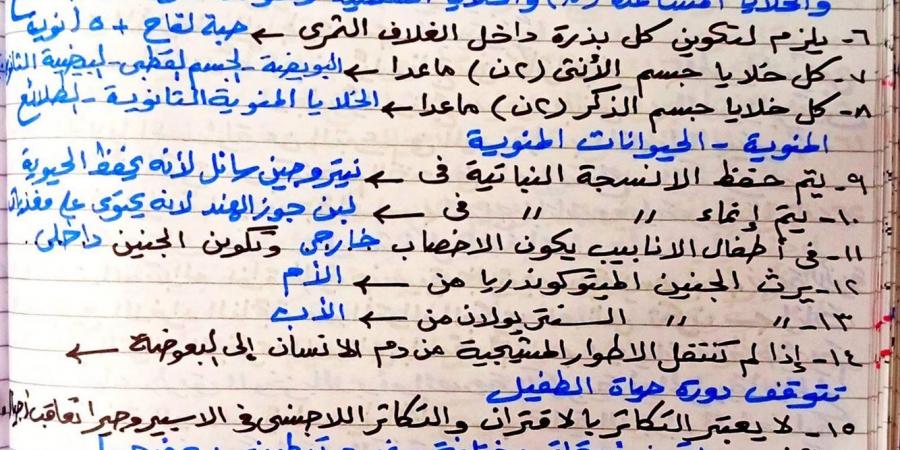 والخلايا المساعدة (٢ن)
٦- يلزم لتكوين كل بذرة داخل الغلاف الثمرى ← حبة لقاح + ٥ أنوية
٧- كل خلايا جسم الأنثى (٢ن) ماعدا ← البويضة - الجسم القطبى - البيضية الثانوية
٨- كل خلايا جسم الذكر (٢ن) ماعدا ← الخلايا المنوية الثانوية - الطلائع
المنوية - الحيوانات المنوية
٩- يتم حفظ الانسجة النباتية فى ← نيتروجين سائل لأنه يحفظ الحيوية
١٠- يتم إنماء " " فى ← لبن جوز الهند لانه يحتوى على
١١- فى أطفال الانابيب يكون الاخصاب خارجى وتكوين الجنين داخلى.
١٢- يرث الجنين الميتوكوندريا من ← الأم
١٣- " " السنتريولان من ← الأب
١٤- إذا لم تنتقل الاطوار المشيجية من دم الانسان إلى البعوضة ←
تتوقف دورة حياة الطفيل
١٥- لا يعتبر التكاثر بالاقتران والتكاثر اللاجنسى فى الاسبيروجيرا تعاقب